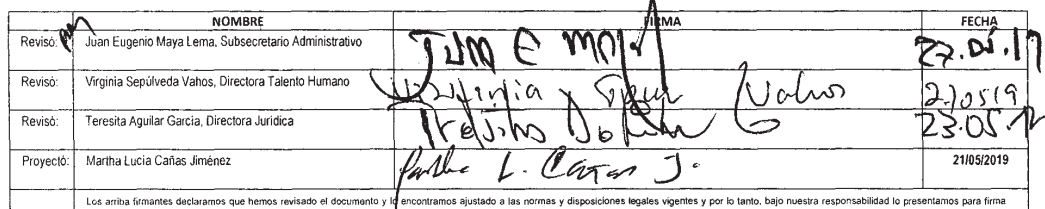 NOMBRE FIRMA FECHA
Revisó: Juan Eugenio Maya Lema, Subsecretario Administrativo JUAN E MAYA
Revisó: Virginia Sepúlveda Vahos, Directora Talento Humano Virginia Vahos
Revisó: Teresita Aguilar García, Directora Jurídica 23.05.
Proyectó: Martha Lucía Cañas Jiménez Martha L. Cañas J. 21/05/2019
Los arriba firmantes declaramos que hemos revisado el documento y lo encontramos ajustado a las normas y disposiciones legales vigentes y por lo tanto, bajo nuestra responsabilidad lo presentamos para firma